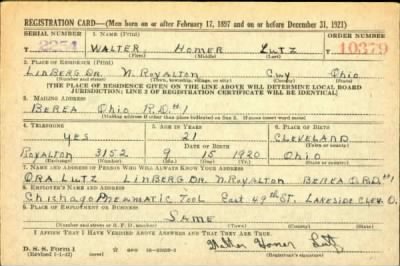 REGISTRATION CARD—(Men born on or after February 17, 1897 and on or before December 31, 1921)
SERIAL NUMBER 1. NAME (Print) ORDER NUMBER
T 2254 WALTER HOMER LUTZ 10379
(First) (Middle) (Last)
2. PLACE OF RESIDENCE (Print)
LINBERG DR. N. ROYALTON CUY OHIO
(Number and street) (Town, township, village, or city) (County) (State)
[THE PLACE OF RESIDENCE GIVEN ON THE LINE ABOVE WILL DETERMINE LOCAL BOARD
JURISDICTION; LINE 2 OF REGISTRATION CERTIFICATE WILL BE IDENTICAL]
3. MAILING ADDRESS
BEREA OHIO R.D.#1
(Mailing address if other than place indicated on line 2. If same insert word same)
4. TELEPHONE 5. AGE IN YEARS 6. PLACE OF BIRTH
YES 21 CLEVELAND
DATE OF BIRTH (Town or county)
ROYALTON 3152 9 15 1920 OHIO
(Exchange) (Number) (Mo.) (Day) (Yr.) (State or country)
7. NAME AND ADDRESS OF PERSON WHO WILL ALWAYS KNOW YOUR ADDRESS
ORA LUTZ LINBERG DR. N. ROYALTON BEREA O RD#1
8. EMPLOYER'S NAME AND ADDRESS
Chichago Pneumatic Tool East 49th St. LAKESIDE CLEV. O.
9. PLACE OF EMPLOYMENT OR BUSINESS
SAME
(Number and street or R. F. D. number) (Town) (County) (State)
I AFFIRM THAT I HAVE VERIFIED ABOVE ANSWERS AND THAT THEY ARE TRUE.
D. S. S. Form 1 Walter Homer Lutz
(Revised 1-1-42) (over)